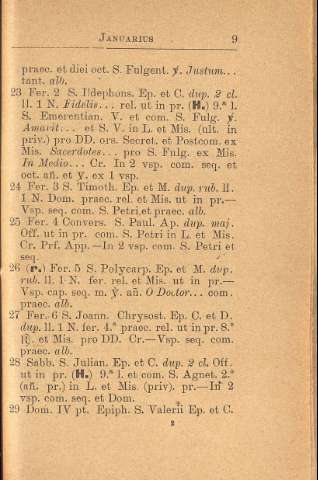 JANUARIUS 9
praec. et diei oct. S. Fulgent. ℣. Justum...
tant. alb.
23 Fer. 2 S. Ildephons. Ep. et C. dup. 2 cl.
ll. 1 N. Fidelis... rel. ut in pr. (H.) 9.ª l.
S. Emerentian. V. et com. S. Fulg. ℣.
Amavit... et S. V. in L. et Mis. (ult. in
priv.) pro DD. ors. Secret. et Postcom. ex
Mis. Sacerdotes... pro S. Fulg. ex Mis.
In Medio... Cr. In 2 vsp. com. seq. et
oct. añ. et ℣. ex 1 vsp.
24 Fer. 3 S. Timoth. Ep. et M. dup. rub. ll.
1 N. Dom. praec. rel. et Mis. ut in pr.—
Vsp. seq. com. S. Petri et praec. alb.
25 Fer. 4 Convers. S. Paul. Ap. dup. maj.
Off. ut in pr. com. S. Petri in L. et Mis.
Cr. Prf. App.—In 2 vsp. com. S. Petri et
seq.
26 (r.) Fer. 5 S. Polycarp. Ep. et M. dup.
rub. ll. 1 N. fer. rel. et Mis. ut in pr.—
Vsp. cap. seq. m. ℣. añ. O Doctor... com.
praec. alb.
27 Fer. 6 S. Joann. Chrysost. Ep. C. et D.
dup. ll. 1 N. fer. 4.ª praec. rel. ut in pr. 8.ª
℟. et Mis. pro DD. Cr.—Vsp. seq. com.
praec. alb.
28 Sabb. S. Julian. Ep. et C. dup. 2 cl. Off.
ut in pr. (H.) 9.ª l. et com. S. Agnet. 2.ª
(añ. pr.) in L. et Mis. (priv). pr.—In 2
vsp. com. seq. et Dom.
29 Dom. IV pt. Epiph. S. Valerii Ep. et C.
2